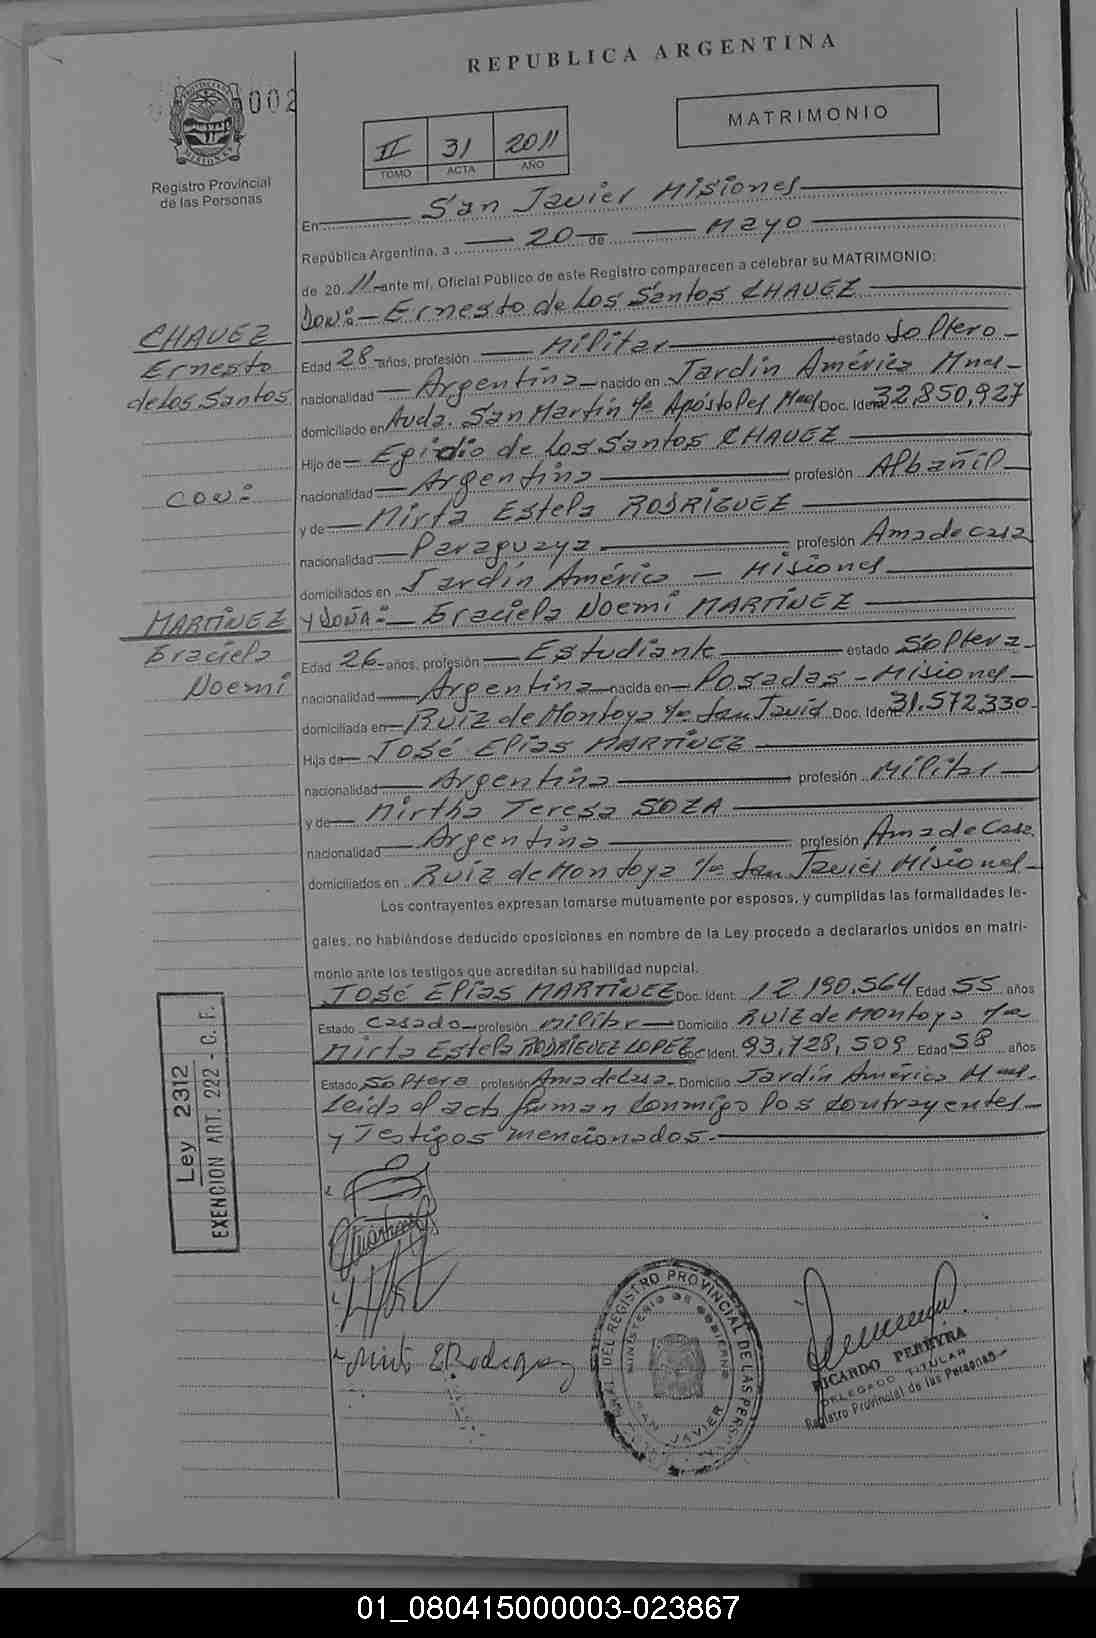 REPUBLICA ARGENTINA
002
MATRIMONIO
II 31 2011
TOMO ACTA AÑO
Registro Provincial
de las Personas
En San Javier Misiones
República Argentina, a 20 de Mayo
de 2011 ante mí, Oficial Público de este Registro comparecen a celebrar su MATRIMONIO:
DON:- Ernesto de Los Santos CHAVEZ
CHAVEZ
Ernesto
de Los Santos
Edad 28 años, profesión Militar estado Soltero
nacionalidad Argentina nacido en Jardín América Mnes
domiciliado en Avda. San Martín Apóstoles Mnes Doc. Ident. 32,850,927
Hijo de Egidio de Los Santos CHAVEZ
nacionalidad Argentina profesión Albañil
CON:
y de Mirta Estela RODRIGUEZ
nacionalidad Paraguaya profesión Ama de casa
domiciliados en Jardín América - Misiones
Y DOÑA:- Graciela Noemi MARTINEZ
MARTINEZ
Graciela
Noemi
Edad 26 años, profesión Estudiante estado Soltera
nacionalidad Argentina nacida en Posadas - Misiones
domiciliada en Ruiz de Montoya San Javier Doc. Ident. 31.572,330
Hija de José Elías MARTINEZ
nacionalidad Argentina profesión Militar
y de Mirtha Teresa SOZA
nacionalidad Argentina profesión Ama de Casa
domiciliados en Ruiz de Montoya San Javier Misiones
Los contrayentes expresan tomarse mutuamente por esposos, y cumplidas las formalidades le-
gales, no habiéndose deducido oposiciones en nombre de la Ley procedo a declararlos unidos en matri-
monio ante los testigos que acreditan su habilidad nupcial.
José Elías MARTINEZ Doc. Ident. 12.190.564 Edad 55 años
Estado Casado profesión Militar Domicilio Ruiz de Montoya
Mirta Estela RODRIGUEZ LOPEZ Doc. Ident. 93,728,509 Edad 58 años
Estado Soltera profesión Ama de Casa Domicilio Jardín América Mnes.
Leida el acta firman conmigo los contrayentes
y Testigos mencionados.
Ley 2312
EXENCION ART. 222 - C. F.
Mirta E Rodriguez
DEL REGISTRO PROVINCIAL DE LAS PERSONAS
MINISTERIO DE GOBIERNO
SAN JAVIER
RICARDO PEREYRA
DELEGADO TITULAR
Registro Provincial de las Personas
01_080415000003-023867